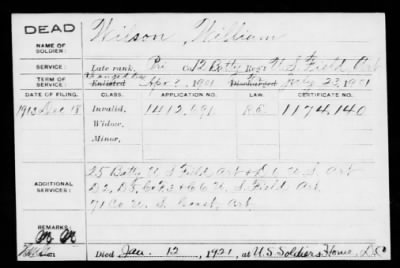 DEAD
NAME OF SOLDIER:
Wilson, William
SERVICE:
Late rank, Pri Co 12 Batty Reg't U. S. Field Art
TERM OF SERVICE:
Enlisted Apr 2, 1901 Discharged 23, 1901
DATE OF FILING. CLASS. APPLICATION NO. LAW. CERTIFICATE NO.
1913 Dec 18 Invalid, 1412,691 1174,140
Widow,
Minor,
ADDITIONAL SERVICES:
25 Batty U S Field Art + U. S. Art
U. S Field Art
71 Co U. S. Coast Art
REMARKS:
Died Jan. 12, 1921, at U. S. Soldiers Home, D.C.